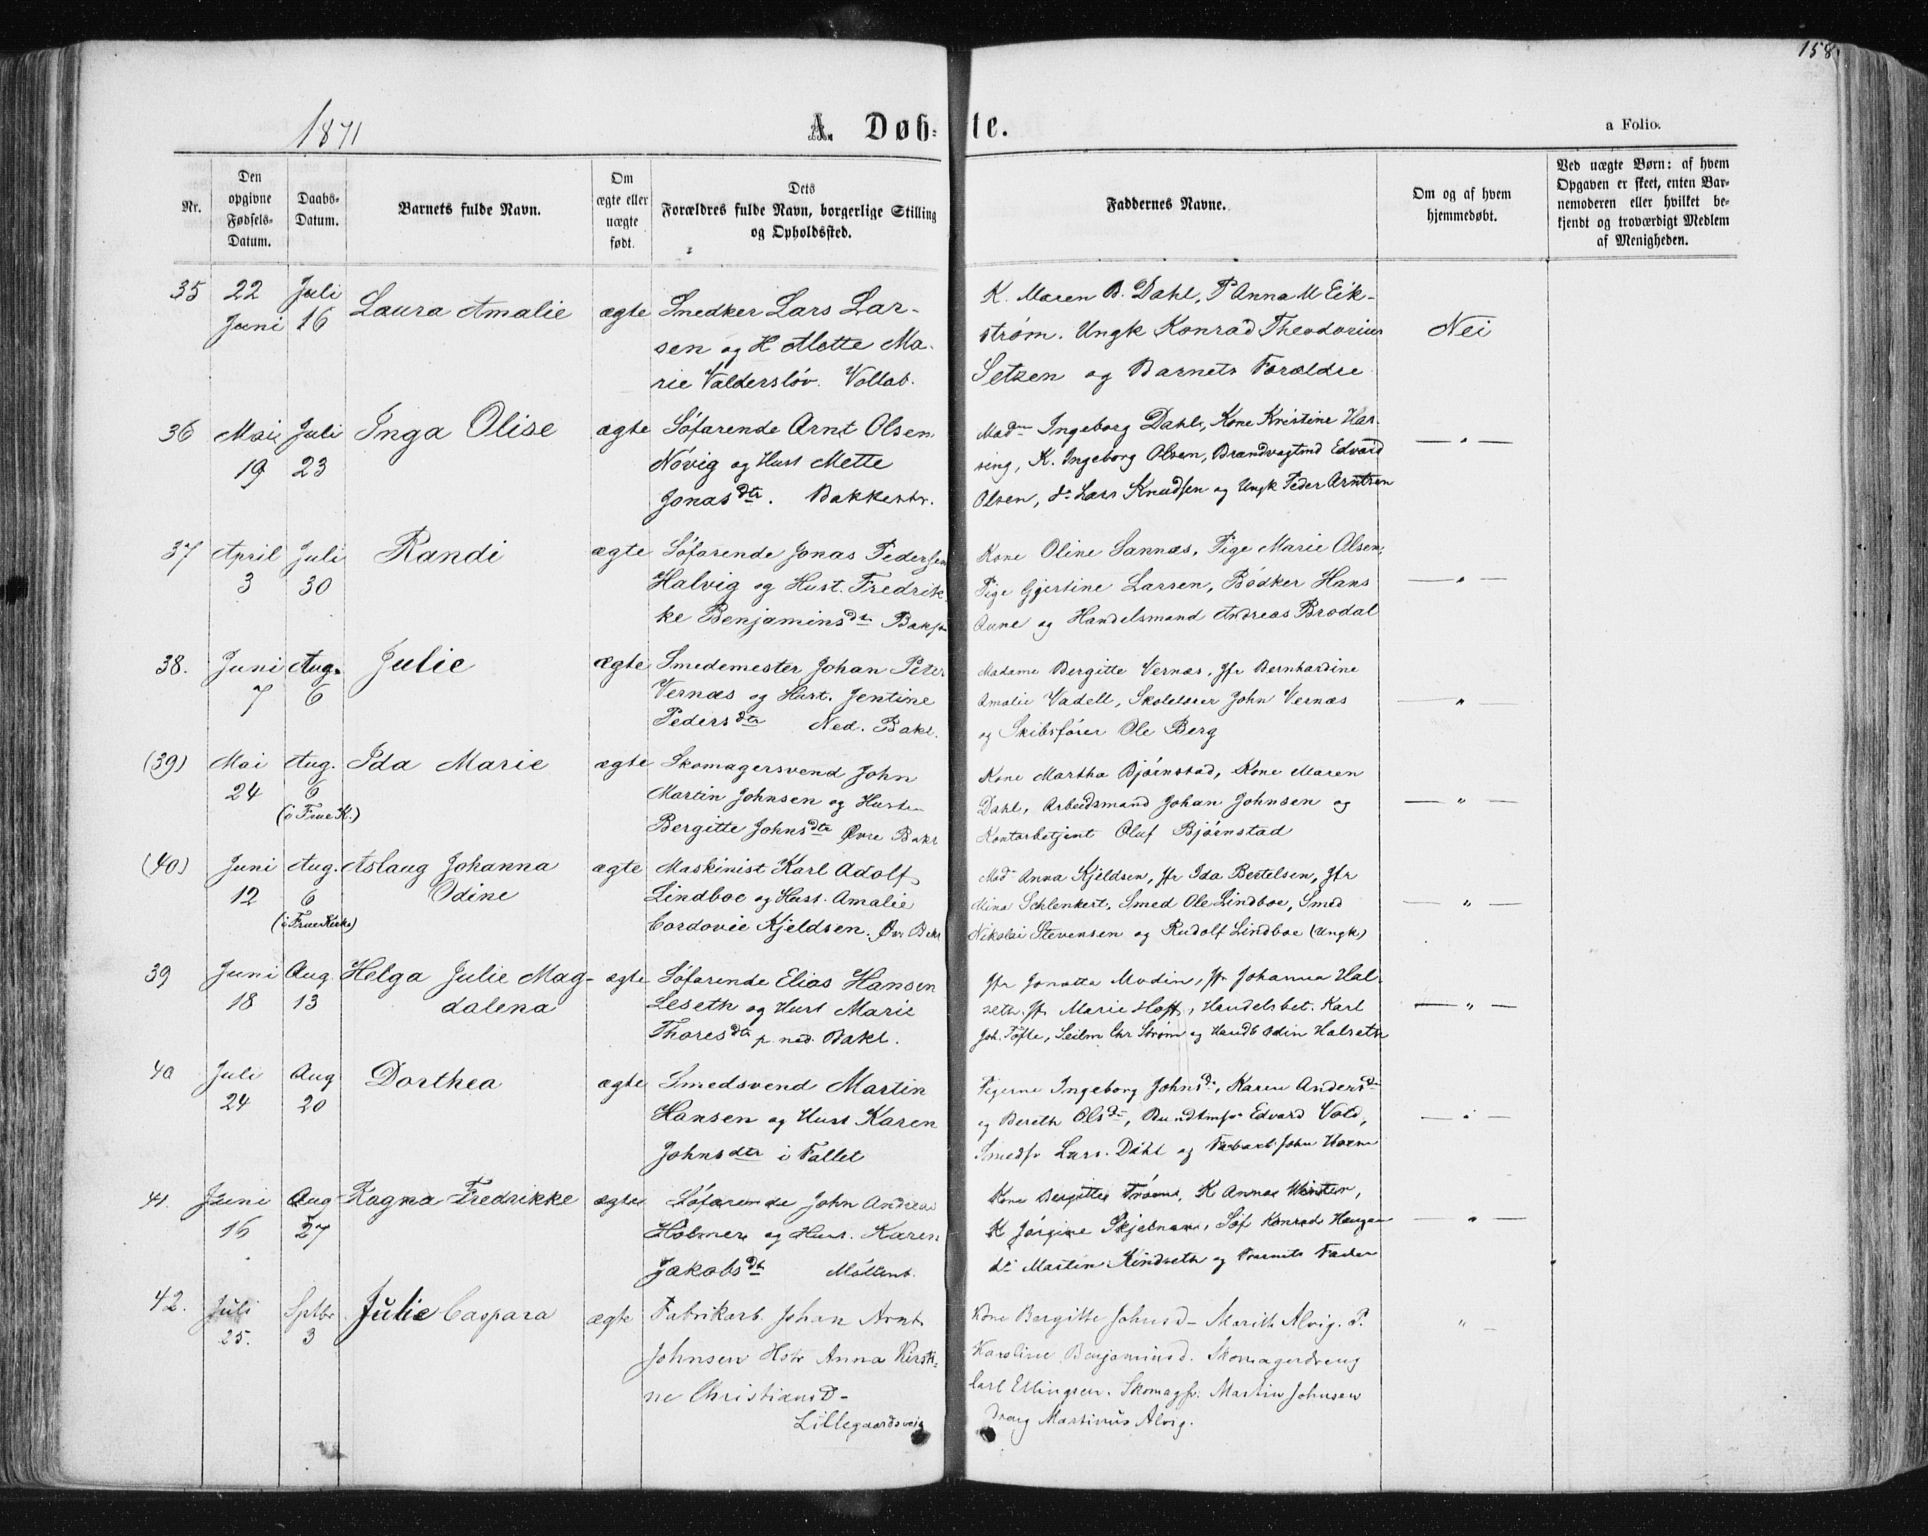 158
1871
A. Døb-te.
a Folio.
Nr.
Den opgivne Fødsels-Datum.
Daabs-Datum.
Barnets fulde Navn.
Om ægte eller uægte født.
Dets Forældres fulde Navn, borgerlige Stilling og Opholdssted.
Faddernes Navne.
Om og af hvem hjemmedøbt.
Ved uægte Børn: af hvem Opgaven er skeet, enten Bar-nemoderen eller hvilket be-kjendt og troværdigt Medlem af Menigheden.
35 22 Juni Juli 16 Laura Amalie ægte
Smedker Lars Lar-
sen og H Mette Ma-
rie Valdersløv. Vollab.
K. Maren B. Dahl, P Anna M Eik-
strøm. Ungk Konrad Theodorius
Setzen og Barnets Forældre
Nei
36 Mai 19 Juli 23 Inga Olise ægte
Søfarende Arnt Olsen
Nøvig og Hust Mette
Jonasdtr. Bakkestr.
Madm Ingeborg Dahl, Kone Kristine Har-
sing, K. Ingeborg Olsen, Brandvagtmd Edvard
Olsen, do Lars Knudsen og Ungk Peder Arntzen
— " —
37 April 3 Juli 30 Randi ægte
Søfarende Jonas Pedersen
Halvig og Hust. Fredrik-
ke Benjaminsdtr
Kone Oline Sannæs, Pige Marie Olsen,
Pige Gjertine Larsen, Bødker Hans
Aune og Handelsmand Andreas Brodal
— " —
38. Juni 7 Aug. 6 Julie ægte
Smedemester Johan Peter
Vernæs og Hust. Jentine
Pedersdtr Ned. Bakl.
Madame Bergitte Vernæs, Jfr Bernhardine
Amalie Vadell, Skolelærer John Vernæs
og Skibsfører Ole Berg
— " —
(39) Mai 24 Aug. 6 (i Frue K.) Ida Marie ægte
Skomagersvend John
Martin Johnsen og Hustr
Bergitte Johnsdtr Øvre Bakl
Kone Martha Bjørnstad, Kone Maren
Dahl, Arbeidsmand Johan Johnsen og
Kontorbetjent Oluf Bjørnstad
— " —
(40) Juni 12 Aug. 6 (i Frue Kirke) Aslaug Johanna Odine ægte
Maskinist Karl Adolf
Lindboe og Hust. Amalie
Cordovie Kjeldsen. Øv. Bakl
Mad Anna Kjeldsen, Jfr Ida Bertelsen, Jfr
Mina Schlenkert, Smed Ole Lindboe, Smed
Nikolai Stevensen og Rudolf Lindboe (Ungk)
— " —
39 Juni 18 Aug. 13 Helga Julie Mag-dalena ægte
Søfarende Elias Hansen
Leseth og Hust Marie
Thoresdtr p. ned. Bakl.
Jfr Jonatta Modin, Jfr Johanna Hal-
seth. Jfr Marie Hoff, Handelsbet. Karl
Joh. Tofte, Seilm Chr Strøm og Handb Odin Halseth
— " —
40 Juli 24 Aug 20 Dorthea ægte
Smedsvend Martin
Hansen og Hust Karen
Johnsdtr i Fallet
Pigerne Ingeborg Johnsd, Karen Andersd
og Bereth Olsd, Edvard Vold,
Smedsv Lars Dahl og John
— " —
41. Juni 16 Aug 27 Ragna Fredrikke ægte
Søfarende John Andreas
Holmer og Hust. Karen
Jakobsdt Møllenb.
Kone Bergitte K Anna
K Jørgine Søf Konrad Haugan
do Martin Kindseth og Barnets Fader
— " —
42. Juli 25. Sptbr 3 Julie Caspara ægte
Fabrikarb. Johan Arnt
Johnsen Hstr Anna Kirsti-
ne Christiansd-
Lillegaardsveig
Kone Bergitte Johnsd- Marith Alvig. P.
Karoline Benjaminsd. Skomagerdreng
Carl Ellingsen. Skomagsv. Martin Johnsen
Dreng Martinus Alvig.
" —